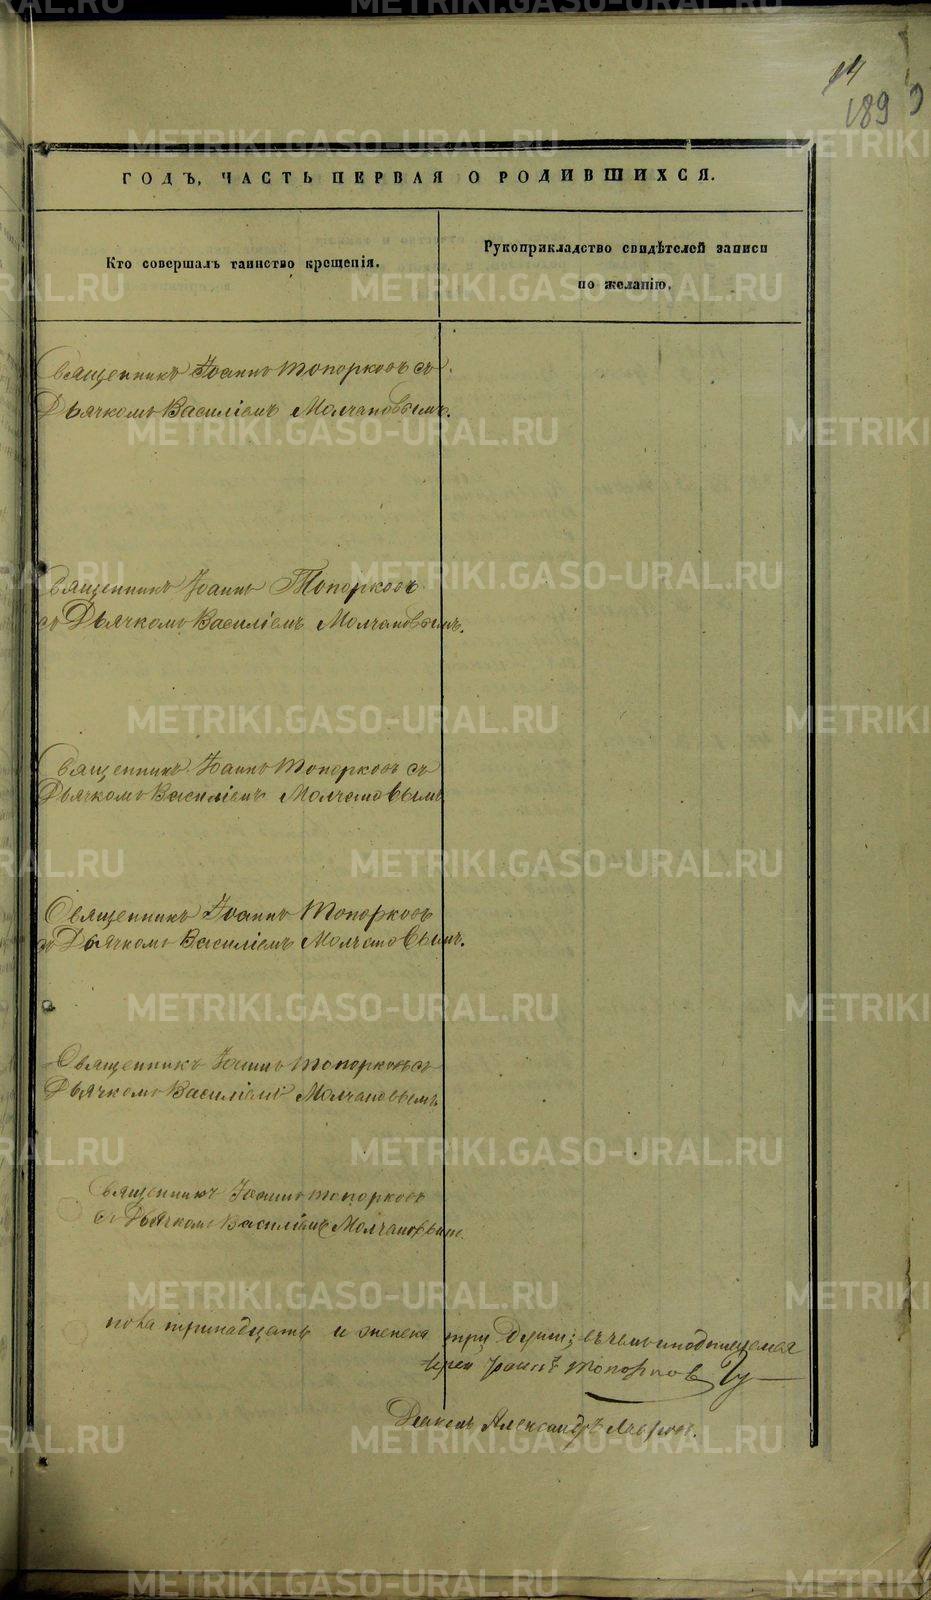 14
189
ГОДЪ, ЧАСТЬ ПЕРВАЯ О РОДИВШИХСЯ.
Кто совершалъ таинство крещенія.
Рукоприкладство свидѣтелей записи
по желанію.
Священникъ Іоаннъ Топорковъ съ
Дьячкомъ Василіемъ Молчановымъ.
Священникъ Іоаннъ Топорковъ
съ Дьячкомъ Василіемъ Молчановымъ.
Священникъ Іоаннъ Топорковъ съ
Дьячкомъ Василіемъ Молчановымъ
Священникъ Іоаннъ Топорковъ
съ Дьячкомъ Василіемъ Молчановымъ.
Священникъ Іоаннъ Топорковъ съ
Дьячкомъ Василіемъ Молчановымъ
Священникъ Іоаннъ Топорковъ
съ Дьячкомъ Василіемъ Молчановымъ.
пола тринадцать и женска три Души; въ чемъ и подпишемся
Іерей Іоаннъ Топорковъ
Александръ
METRIKI.GASO-URAL.RU